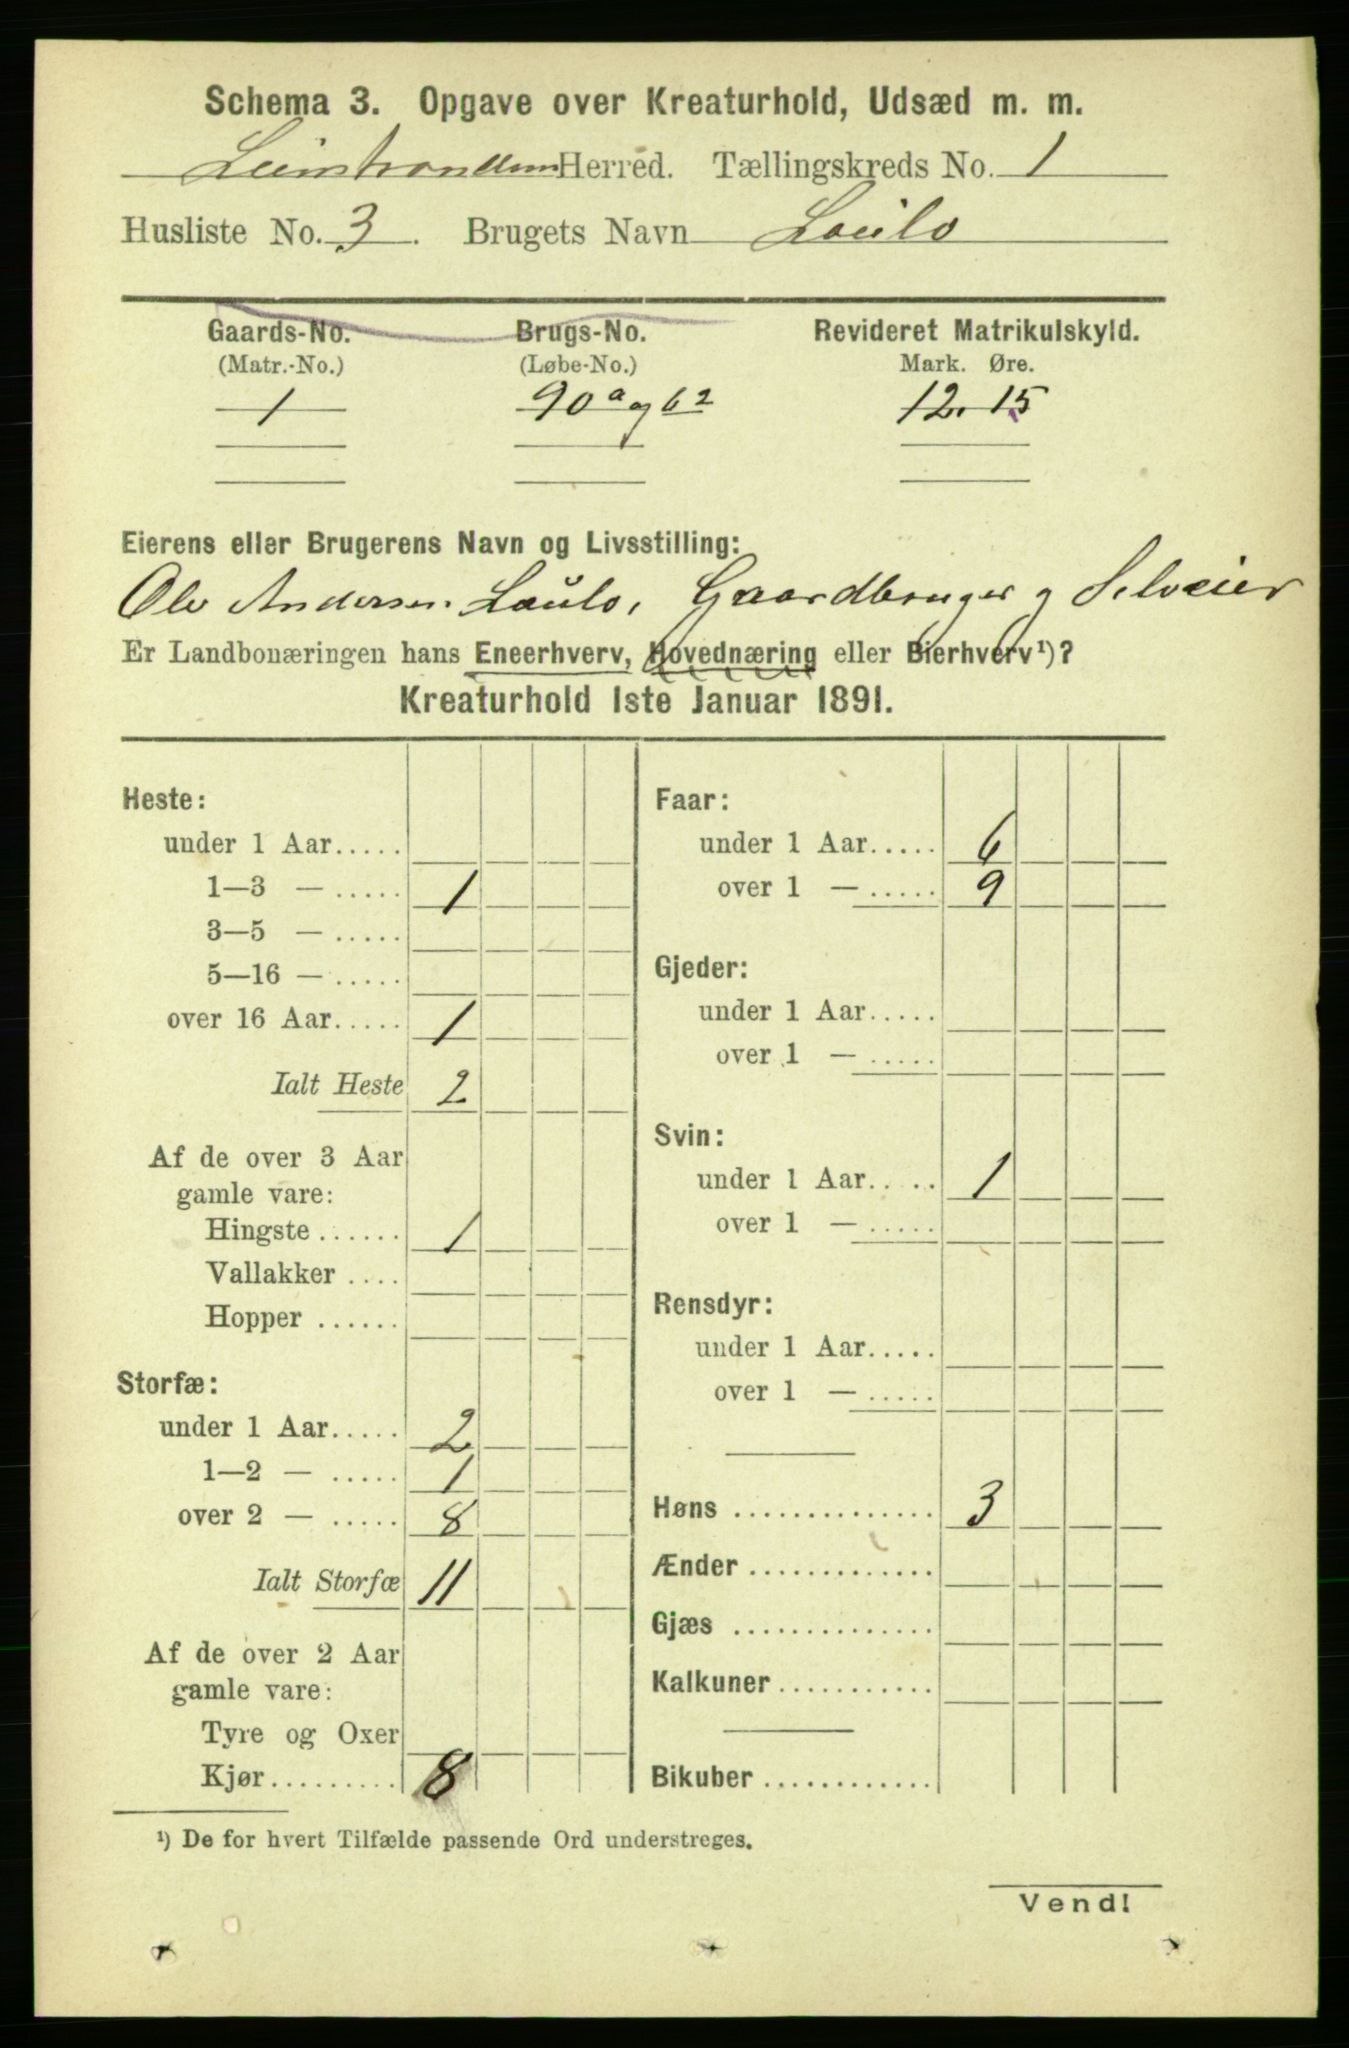 Schema 3. Opgave over Kreaturhold, Udsæd m. m.
Leinstranden Herred. Tællingskreds No. 1
Husliste No. 3. Brugets Navn Loulo
Gaards-No. Brugs-No. Revideret Matrikulskyld.
(Matr.-No.) (Løbe-No.) Mark. Øre.
1 90 a og 62 12. 15
Eierens eller Brugerens Navn og Livsstilling:
Ole Andersen Loulo, Gaardbruger og Selveier
Er Landbonæringen hans Eneerhverv, Hovednæring eller Bierhverv¹)?
Kreaturhold 1ste Januar 1891.
Heste:
under 1 Aar.....
1—3 — ..... 1
3—5 — .....
5—16 — .....
over 16 Aar..... 1
Ialt Heste 2
Af de over 3 Aar
gamle vare:
Hingste ...... 1
Vallakker ....
Hopper ......
Storfæ:
under 1 Aar..... 2
1—2 — ..... 1
over 2 — ..... 8
Ialt Storfæ 11
Af de over 2 Aar
gamle vare:
Tyre og Oxer
Kjør......... 8
Faar:
under 1 Aar..... 6
over 1 — ..... 9
Gjeder:
under 1 Aar.....
over 1 — .....
Svin:
under 1 Aar..... 1
over 1 — .....
Rensdyr:
under 1 Aar.....
over 1 — .....
Høns .............. 3
Ænder .............
Gjæs ..............
Kalkuner ...........
Bikuber ............
¹) De for hvert Tilfælde passende Ord understreges.
Vend!